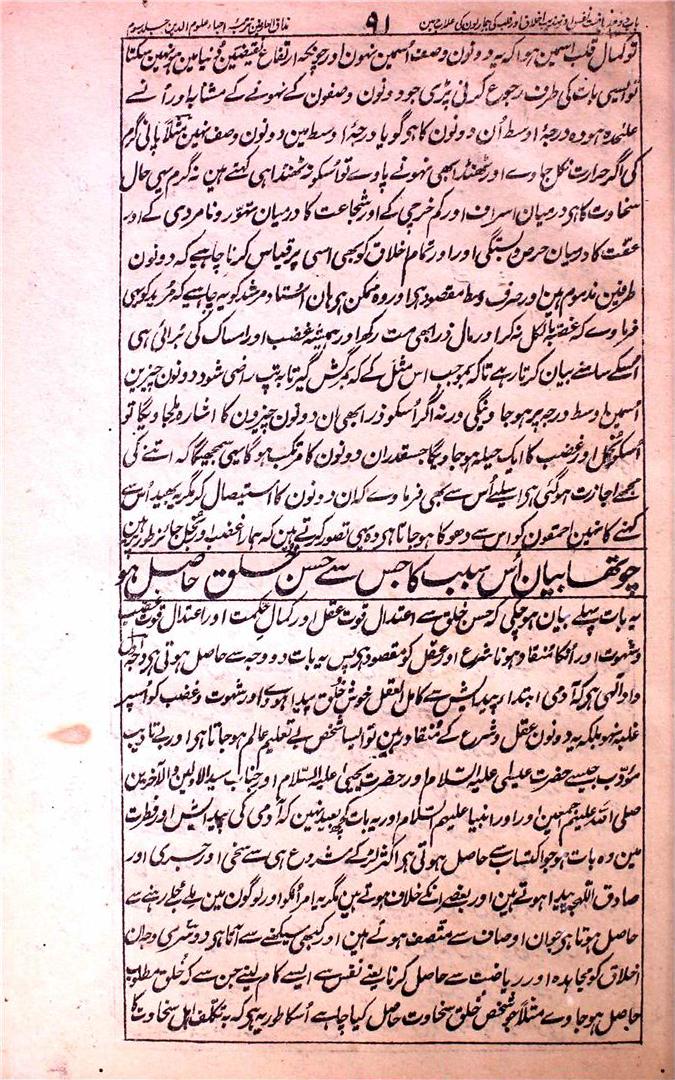 باب دوم ریاضت نفس اور تہذیب اخلاق اور قلب کی بیماریوں کی علاج میں ۹۱ مذاق العارفین ترجمہ احیاء علوم الدین جلد سوم
تو کمال قلب اسمین ہوا کہ یہ دونون وصف اُسمین نہون اور چونکہ ارتفاع نقیضین دنیا مین ہو نہین سکتا
تو ایسی بات کی طرف رجوع کرنی پڑی جو دونون وصفون کے نہونے کے مشابہ اور اُنسے
علٰحدہ ہو وہ درجۂ اوسط اُن دونون کا ہو گویا درجۂ اوسط مین دونون وصف نہین مثلاً پانی گرم
کی اگر حرارت نکل جاوے اور ٹھنڈا بھی نہونے پاوے تو اُسکو نہ ٹھنڈا ہی کہتے ہین نہ گرم یہی حال
سخاوت کا ہی درمیان اسراف اور کم خرچی کے اور شجاعت کا درمیان تہور و نامردی کے اور
عفت کا درمیان حرص و بستگی اور اور تمام اخلاق کو بھی اسی پر قیاس کرنا چاہیے کہ دونون
طرفین مذموم ہین اور صرف وسط مقصود ہی اور وہ ممکن ہی ہان اُستاد مرشد کو یہ چاہیے کہ مُرید کو یہی
فرماوے کہ غصہ بالکل نہ کر اور مال ذرا بھی مت رکھ اور ہمیشہ غضب اور امساک کی بُرائی ہی
اُسکے سامنے بیان کرتا رہے تاکہ بموجب اس مثل کے کہ بمرگش گیر تا بہ تپ راضی شود دونون چیزین
اُسمین اوسط درجہ پر ہو جاوینگی ورنہ اگر اُسکو ذرا بھی ان دونون چیزون کا اشارہ ملجاویگا تو
اُسکو بخل اور غضب کا ایک حیلہ ہو جاویگا جسقدر ان دونون کا مرتکب ہوگا یہی سمجھیگا کہ اتنے کی
مجھے اجازت ہو گئی ہی اسلیے اُس سے بھی فرماوے کہ ان دونون کا استیصال کر مگر یہ بھید اُس سے
کہنے کا نہین احمقون کو اس سے دھوکا ہو جاتا ہی وہ یہی تصور کرتے ہین کہ ہمارا غضب اور بخل جائز طور پر ہین
چوتھا بیان اُس سبب کا جس سے حسن خلق حاصل ہو
یہ بات پہلے بیان ہو چکی کہ حسن خلق سے اعتدال قوت عقل اور کمال حکمت اور اعتدال قوت غضب
و شہوت اور اُنکا منقاد ہونا شرع اور عقل کو مقصود ہی پس یہ بات دو وجہ سے حاصل ہوتی ہی وجہ اول
داد آلٰہی ہی کہ آدمی ابتداء پیدایش سے کامل العقل خوش خُلق پیدا ہووے اور شہوت و غضب کو اُسپر
غلبہ نہو بلکہ یہ دونون عقل و شرع کے منقاد رہین تو ایسا شخص بے تعلیم عالم ہو جاتا ہی اور بے تادیب
مؤدب جیسے حضرت عیسٰی علیہ السلام اور حضرت یحیٰی علیہ السلام اور جناب سید الاولین والآخرین
صلی اللہ علیہم اجمعین اور اور انبیا علیہم السلام اور یہ بات کچھ بعید نہین کہ آدمی کی پیدایش اور فطرت
مین وہ بات ہو جو اکتساب سے حاصل ہوتی ہی اکثر لڑکے شروع ہی سے سخی اور جری اور
صادق اللہجہ پیدا ہوتے ہین اور بعضے اُنکے خلاف ہوتے ہین مگر یہ امر اُنکو اور لوگون مین ملے جلے رہنے سے
حاصل ہوتا ہی جو ان اوصاف سے متصف ہوتے ہین اور کبھی سیکھنے سے آتا ہی دوسری وجہ ان
اخلاق کو مجاہدہ اور ریاضت سے حاصل کرنا یعنے نفس سے ایسے کام لینے جن سے کہ خُلق مطلوب
حاصل ہو جاوے مثلاً جو شخص خلق سخاوت حاصل کیا چاہے اُسکا طور یہ ہی کہ بہ تکلف اہل سخاوت کا